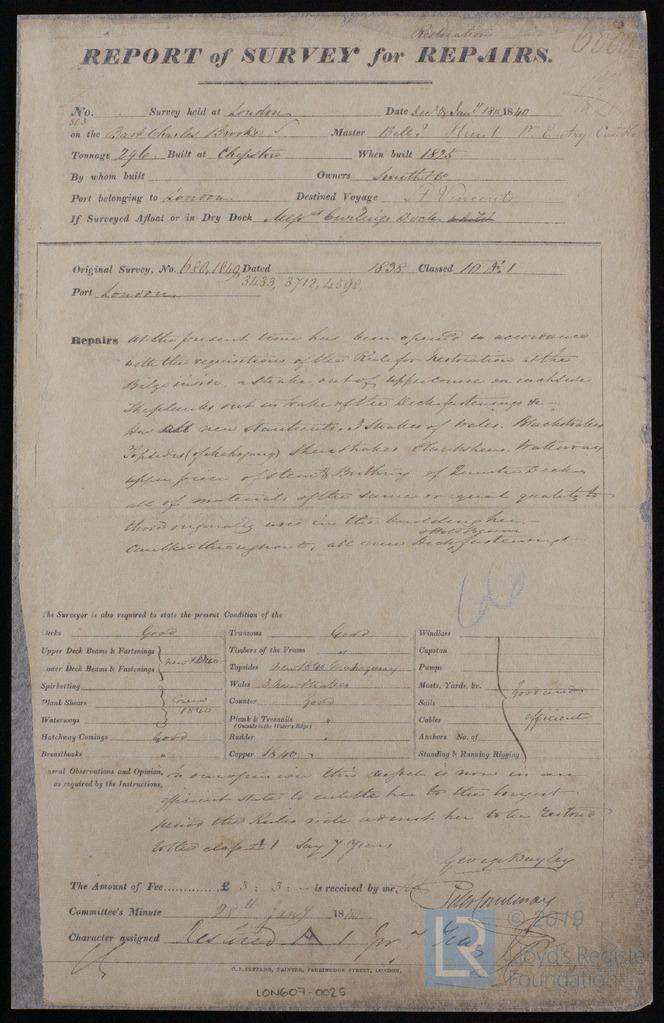 Restoration
6000
REPORT of SURVEY for REPAIRS.
No. 313 Survey held at London Date Decr & Jany 1840
on the Bark Charles Brooke Master
Tonnage 296. Built at Chepstow When built 1825
By whom built Owners Smith & Co
Port belonging to London Destined Voyage St Vincents
If Surveyed Afloat or in Dry Dock Messrs Curlings Dock
Original Survey, No. 680, 1840, Dated 1838 Classed 10 A. 1
3433, 3712, 4598,
Port London
Repairs At the present time has been opened in accordance
with the requisitions of the Rule for restoration at the
Bilge inside, a strake out of upper course on each side
The planks out in wake of the Deck fastenings &c
Has all new Stantients, 3 Strakes of Wales. Blackstrakes
Topsides (of Mahogany) Sheerstrakes Plankshears. Waterways
upper piece of stem & Birthing of Quarter Deck
all of materials of the same or equal quality to
those originally used in the building her.
& Hold Beam
Caulked throughout, all new Deck fastenings
60
The Surveyor is also required to state the present Condition of the
Decks Good
Upper Deck Beams & Fastenings
Lower Deck Beams & Fastenings
new 1840
Spirketting
Plank Shears
Waterways
1840
Hatchway Comings Good
Breasthooks "
Transoms Good
Timbers of the Frame "
Topsides new 1840 Mahogany
Wales 3 new Strakes
Counter good
Plank & Treenails "
(Outside to the Water's Edge)
Rudder "
Copper 1840
Windlass
Capstan
Pumps
Masts, Yards, &c.
Sails
Cables
Anchors No. of
Standing & Running Rigging
Good and
efficient
General Observations and Opinion,
as required by the Instructions,
In our opinion this vessel is now in an
efficient state to entitle her to the longest
period the Rules will admit her to be restored
to the class A1 Say 7 Years
George Bayley
The Amount of Fee £ 3 : 3 : - is received by me,
Committee's Minute 28th Jany 1840
Character assigned Restored A 1 for 7 Years
C. F. SEYFANG, PRINTER, FARRINGDON STREET, LONDON.
LON607-0025
LR
© 2019
Lloyd's Register
Foundation